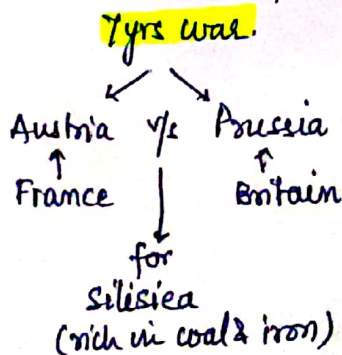 7yrs war.
Austria v/s Prussia
France Britain
for
silisiea
(rich in coal & iron)